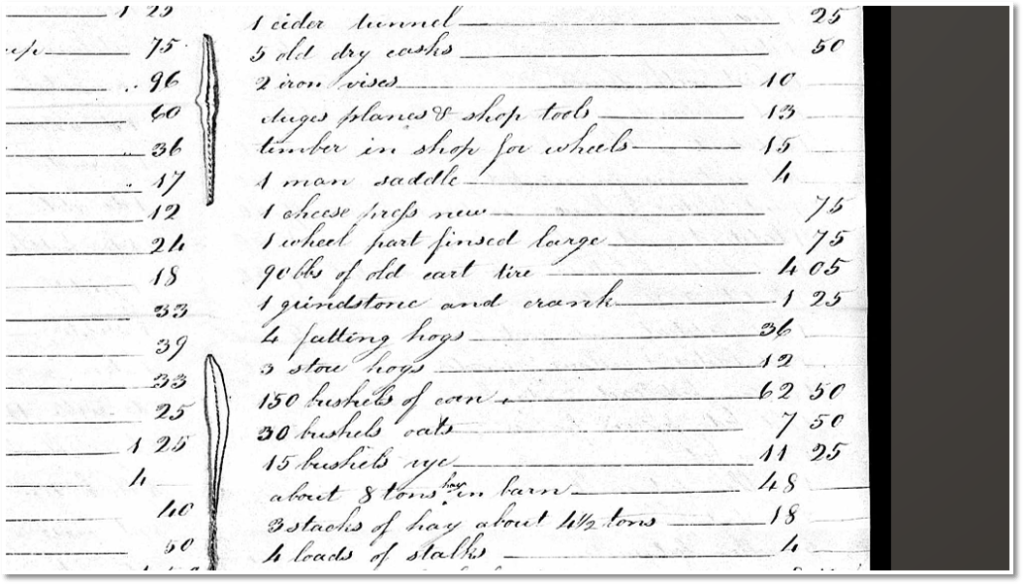 1 25
75
96
60
36
17
12
24
18
33
39
33
25
1 25
4
40
50
1 cider tunnel 25
5 old dry casks 50
2 iron vises 10
auges planes & shop tools 13
timber in shop for wheels 15
1 man saddle 4
1 cheese press new 75
1 wheel part finsed large 75
90 lbs of old cart tire 4 05
1 grindstone and crank 1 25
4 fatting hogs 36
3 stow hogs 12
150 bushels of corn 62 50
30 bushels oats 7 50
15 bushels rye 11 25
about 8 tons hay in barn 48
3 stacks of hay about 4½ tons 18
4 loads of stalks 4